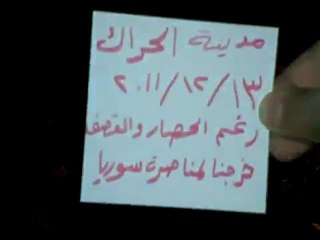 مدينة الحراك
٢٠١١/١٢/١٣
رغم الحصار والقصف
خرجنا لمناصرة سوريا